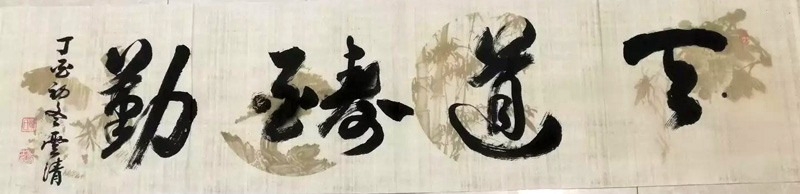 天道醻勤
丁酉初冬雲清